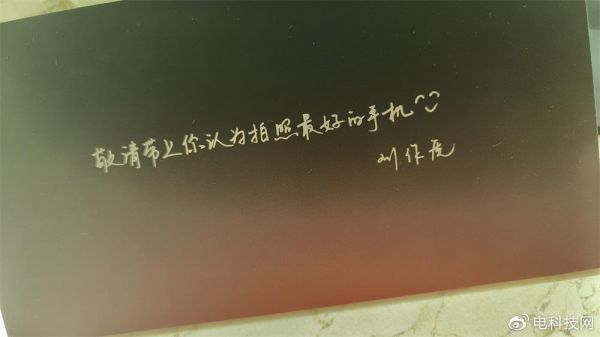 敬请带上你认为拍照最好的手机
刘作虎
电科技网